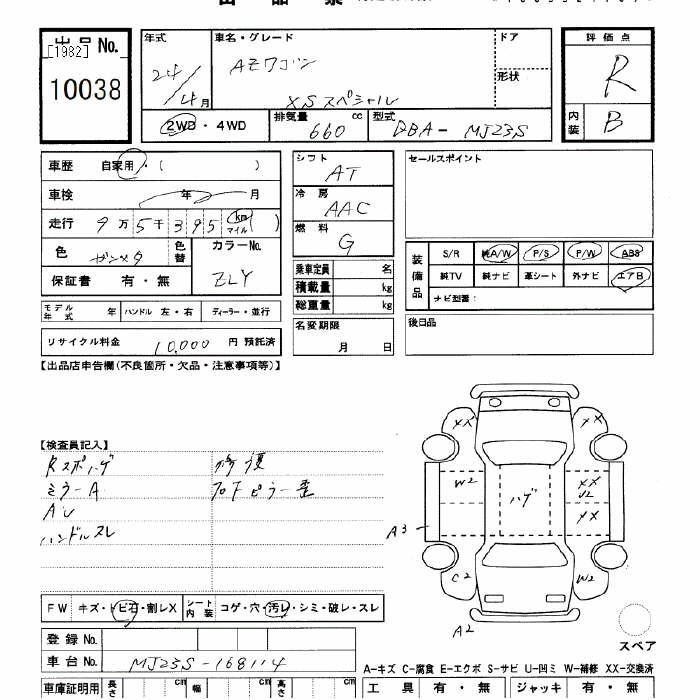 出品No.
[1982]
10038
年式
24/4月
車名・グレード
AZワゴン
XSスペシャル
ドア
形状
評価点
R
内装 B
2WD・4WD
排気量 660 cc
型式 DBA-MJ23S
車歴 自家用・( )
車検 年 月
走行 9万5千395 km マイル ( )
色 ガンメタ
色替
カラーNo. ZLY
保証書 有・無
シフト AT
冷房 AAC
燃料 G
乗車定員 名
積載量 kg
総重量 kg
名変期限
月 日
セールスポイント
装備品
S/R 純A/W P/S P/W ABS
純TV 純ナビ 革シート 外ナビ エアB
ナビ型番:
後日品
モデル年式 年 ハンドル 左・右 ディーラー・並行
リサイクル料金 10,000 円 預託済
【出品店申告欄(不良箇所・欠品・注意事項等)】
【検査員記入】
Rスポハゲ 修復
ミラーA フロFピラー歪
AU
ハンドルスレ
XX XX
W2 ハゲ XX
U2
XX
A3
C2 W2
A2
スペア
FW キズ・トビ石・割レX シート内装 コゲ・穴・汚レ・シミ・破レ・スレ
登録No.
車台No. MJ23S-168114
A-キズ C-腐食 E-エクボ S-サビ U-凹ミ W-補修 XX-交換済
車庫証明用 長さ cm 幅 cm 高さ cm
工具 有・無 ジャッキ 有・無